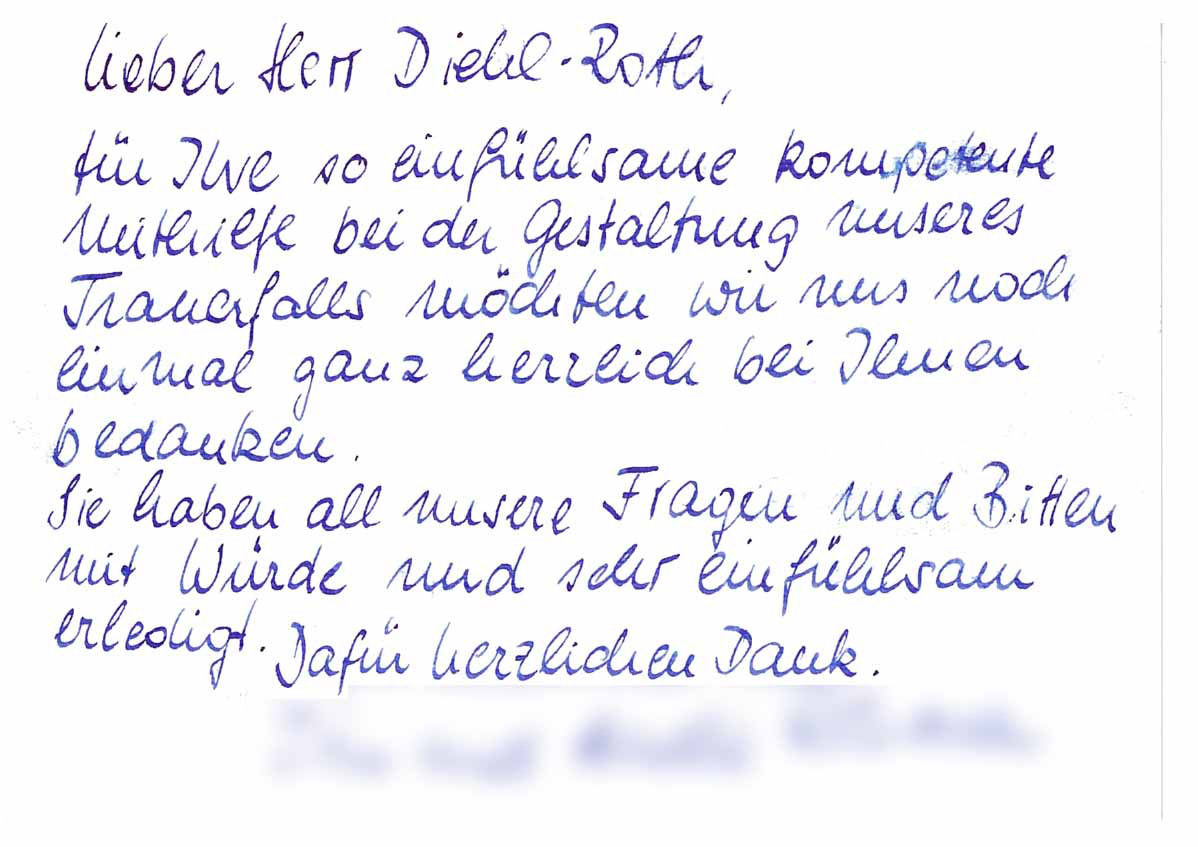 lieber Herr Diehl-Roth,
für Ihre so einfühlsame kompetente
Mithilfe bei der Gestaltung unseres
Trauerfalls möchten wir uns noch
einmal ganz herzlich bei Ihnen
bedanken.
Sie haben all unsere Fragen und Bitten
mit Würde und sehr einfühlsam
erledigt. Dafür herzlichen Dank.